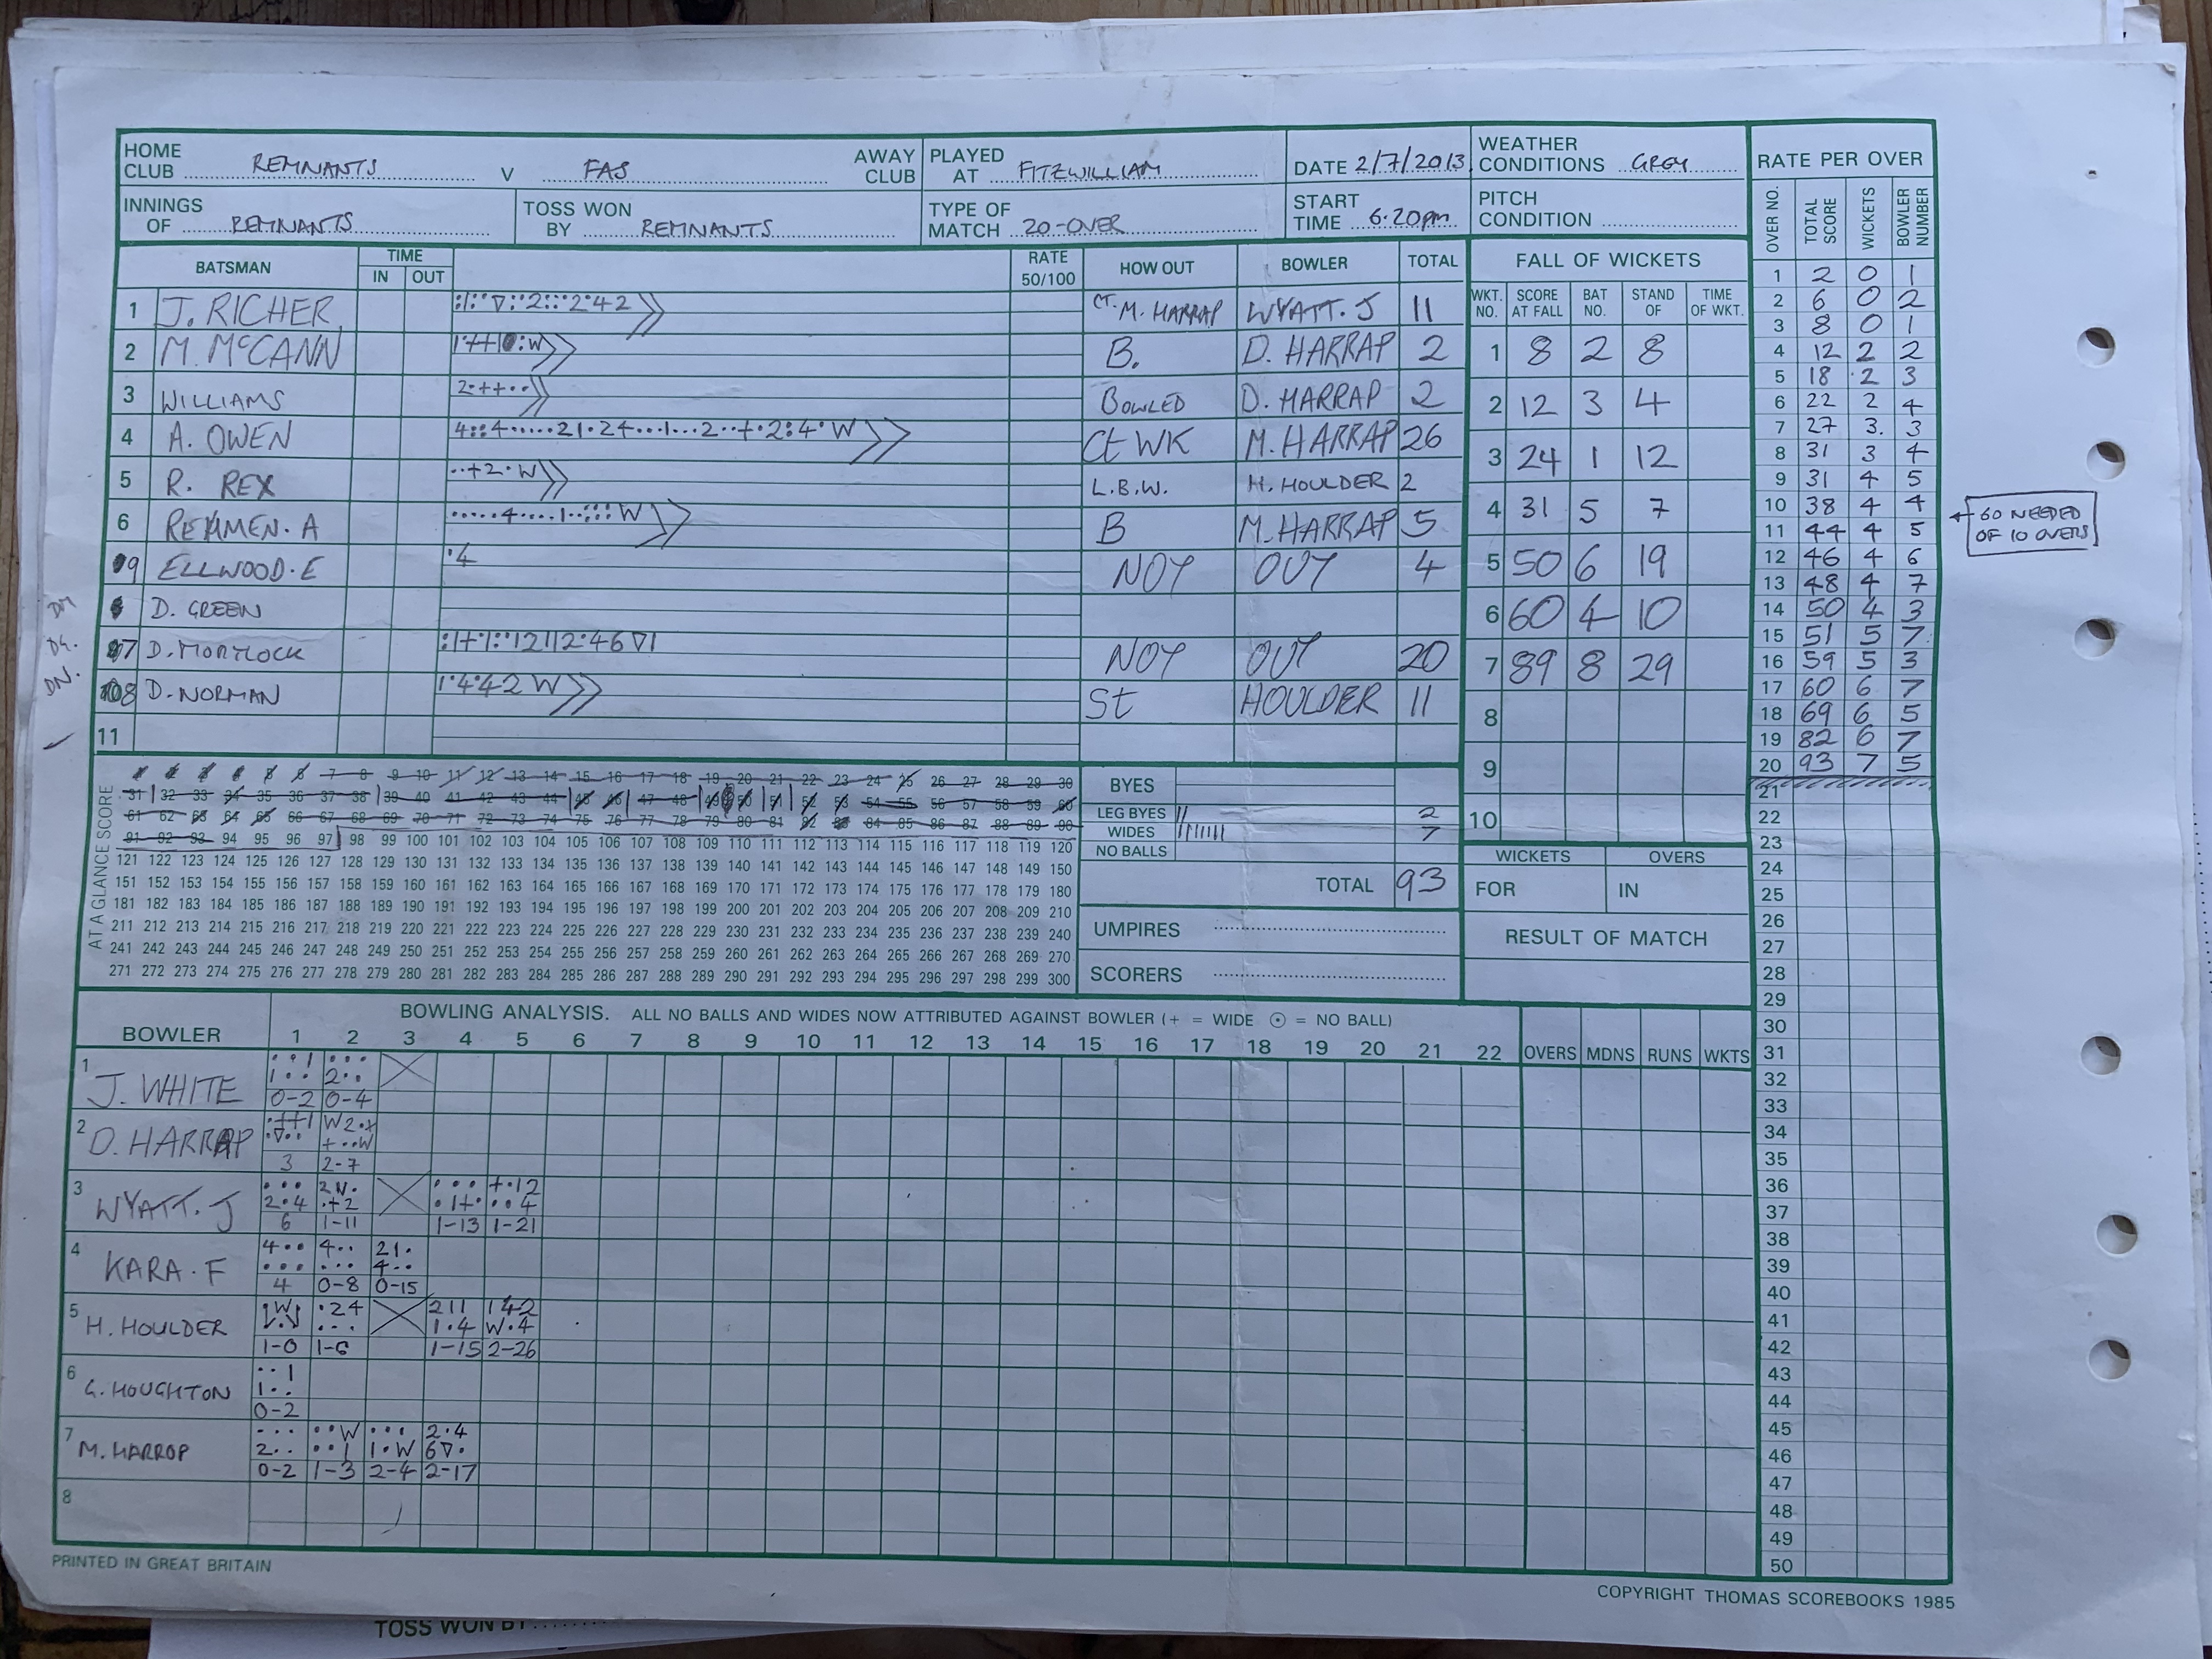 HOME CLUB REMNANTS V FAS AWAY CLUB
PLAYED AT FITZWILLIAM
DATE 2/7/2013
WEATHER CONDITIONS GREY
INNINGS OF REMNANTS
TOSS WON BY REMNANTS
TYPE OF MATCH 20-OVER
START TIME 6.20pm
PITCH CONDITION
BATSMAN TIME IN OUT RATE 50/100 HOW OUT BOWLER TOTAL
1 J. RICHER CT. M. HARRAP WYATT. J 11
2 M. McCANN B. D. HARRAP 2
3 WILLIAMS BOWLED D. HARRAP 2
4 A. OWEN Ct WK M. HARRAP 26
5 R. REX L.B.W. H. HOULDER 2
6 A B M. HARRAP 5
9 ELLWOOD. E NOT OUT 4
D. GREEN
7 D. MORTLOCK NOT OUT 20
8 D. NORMAN St HOULDER 11
11
DM
DG.
DN.
FALL OF WICKETS
WKT. NO. SCORE AT FALL BAT NO. STAND OF TIME OF WKT.
1 8 2 8
2 12 3 4
3 24 1 12
4 31 5 7
5 50 6 19
6 60 4 10
7 89 8 29
8
9
10
WICKETS OVERS
FOR IN
RESULT OF MATCH
RATE PER OVER
OVER NO. TOTAL SCORE WICKETS BOWLER NUMBER
1 2 0 1
2 6 0 2
3 8 0 1
4 12 2 2
5 18 2 3
6 22 2 4
7 27 3. 3
8 31 3 4
9 31 4 5
10 38 4 4
11 44 4 5
12 46 4 6
13 48 4 7
14 50 4 3
15 51 5 7
16 59 5 3
17 60 6 7
18 69 6 5
19 82 6 7
20 93 7 5
21
22
23
24
25
26
27
28
29
30
31
32
33
34
35
36
37
38
39
40
41
42
43
44
45
46
47
48
49
50
60 NEEDED
OF 10 OVERS
AT A GLANCE SCORE
7 8 9 10 11 12 13 14 15 16 17 18 19 20 21 22 23 24 25 26 27 28 29 30
31 32 33 34 35 36 37 38 39 40 41 42 43 44 45 46 47 48 49 50 51 52 53 54 55 56 57 58 59 60
61 62 63 64 65 66 67 68 69 70 71 72 73 74 75 76 77 78 79 80 81 82 83 84 85 86 87 88 89 90
91 92 93 94 95 96 97 98 99 100 101 102 103 104 105 106 107 108 109 110 111 112 113 114 115 116 117 118 119 120
121 122 123 124 125 126 127 128 129 130 131 132 133 134 135 136 137 138 139 140 141 142 143 144 145 146 147 148 149 150
151 152 153 154 155 156 157 158 159 160 161 162 163 164 165 166 167 168 169 170 171 172 173 174 175 176 177 178 179 180
181 182 183 184 185 186 187 188 189 190 191 192 193 194 195 196 197 198 199 200 201 202 203 204 205 206 207 208 209 210
211 212 213 214 215 216 217 218 219 220 221 222 223 224 225 226 227 228 229 230 231 232 233 234 235 236 237 238 239 240
241 242 243 244 245 246 247 248 249 250 251 252 253 254 255 256 257 258 259 260 261 262 263 264 265 266 267 268 269 270
271 272 273 274 275 276 277 278 279 280 281 282 283 284 285 286 287 288 289 290 291 292 293 294 295 296 297 298 299 300
BYES
LEG BYES 2
WIDES 7
NO BALLS
TOTAL 93
UMPIRES
SCORERS
BOWLING ANALYSIS. ALL NO BALLS AND WIDES NOW ATTRIBUTED AGAINST BOWLER (+ = WIDE ⊙ = NO BALL)
BOWLER 1 2 3 4 5 6 7 8 9 10 11 12 13 14 15 16 17 18 19 20 21 22 OVERS MDNS RUNS WKTS
1 J. WHITE 0-2 0-4
2 D. HARRAP 3 2-7
3 WYATT. J 6 1-11 1-13 1-21
4 KARA. F 4 0-8 0-15
5 H. HOULDER 1-0 1-6 1-15 2-26
6 G. HOUGHTON 0-2
7 M. HARROP 0-2 1-3 2-4 2-17
8
PRINTED IN GREAT BRITAIN
COPYRIGHT THOMAS SCOREBOOKS 1985
TOSS WON BY